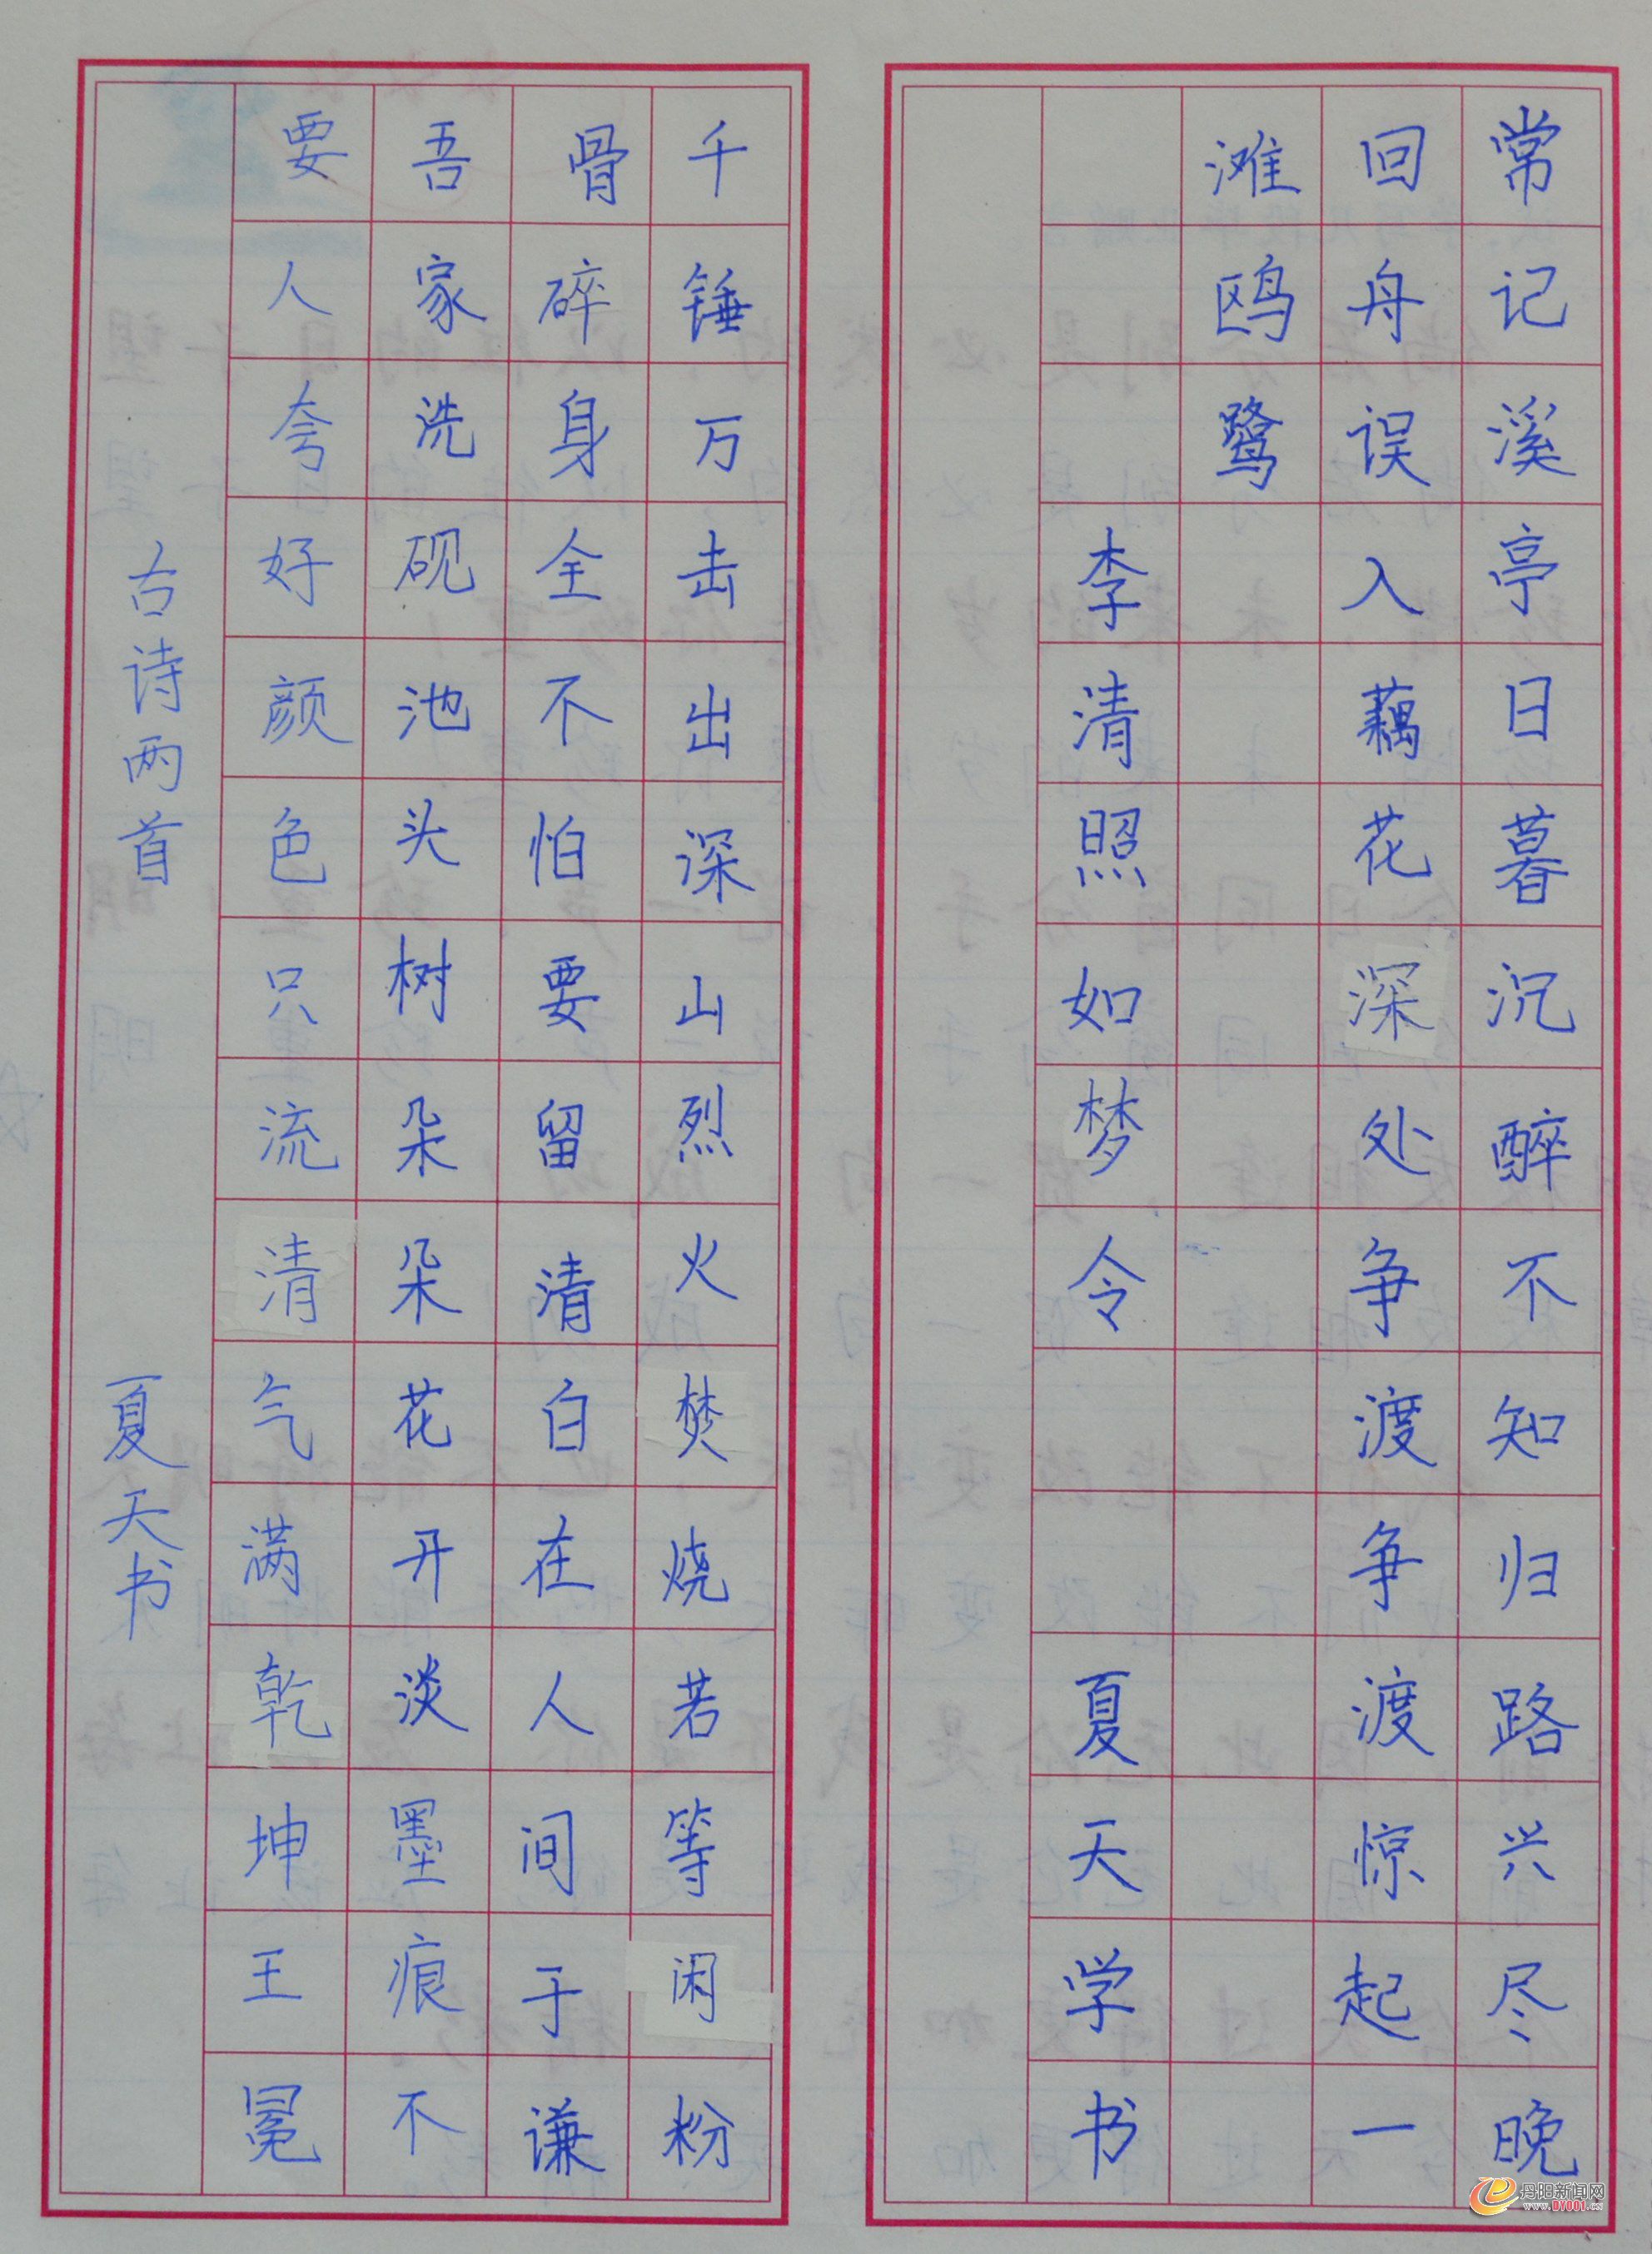 常记溪亭日暮沉醉不知归路兴尽晚
回舟误入藕花深处争渡争渡惊起一
滩鸥鹭
李清照如梦令 夏天学书
千锤万击出深山烈火焚烧若等闲粉
骨碎身全不怕要留清白在人间于谦
吾家洗砚池头树朵朵花开淡墨痕不
要人夸好颜色只流清气满乾坤王冕
古诗两首 夏天书
丹阳新闻网
WWW.DY001.CN